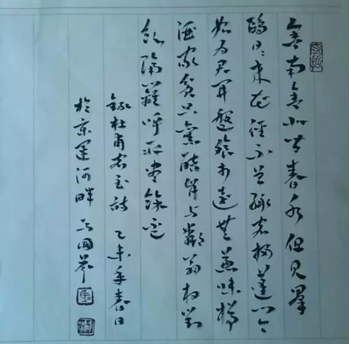 舍南舍北皆春水但見羣
鷗日日來花徑不曾緣客掃蓬門今
始為君開盤飧市遠無兼味樽
酒家貧只舊醅肯與鄰翁相對
飲隔籬呼取盡餘杯
錄杜甫客至詩 乙未年春日
於京運河畔 國